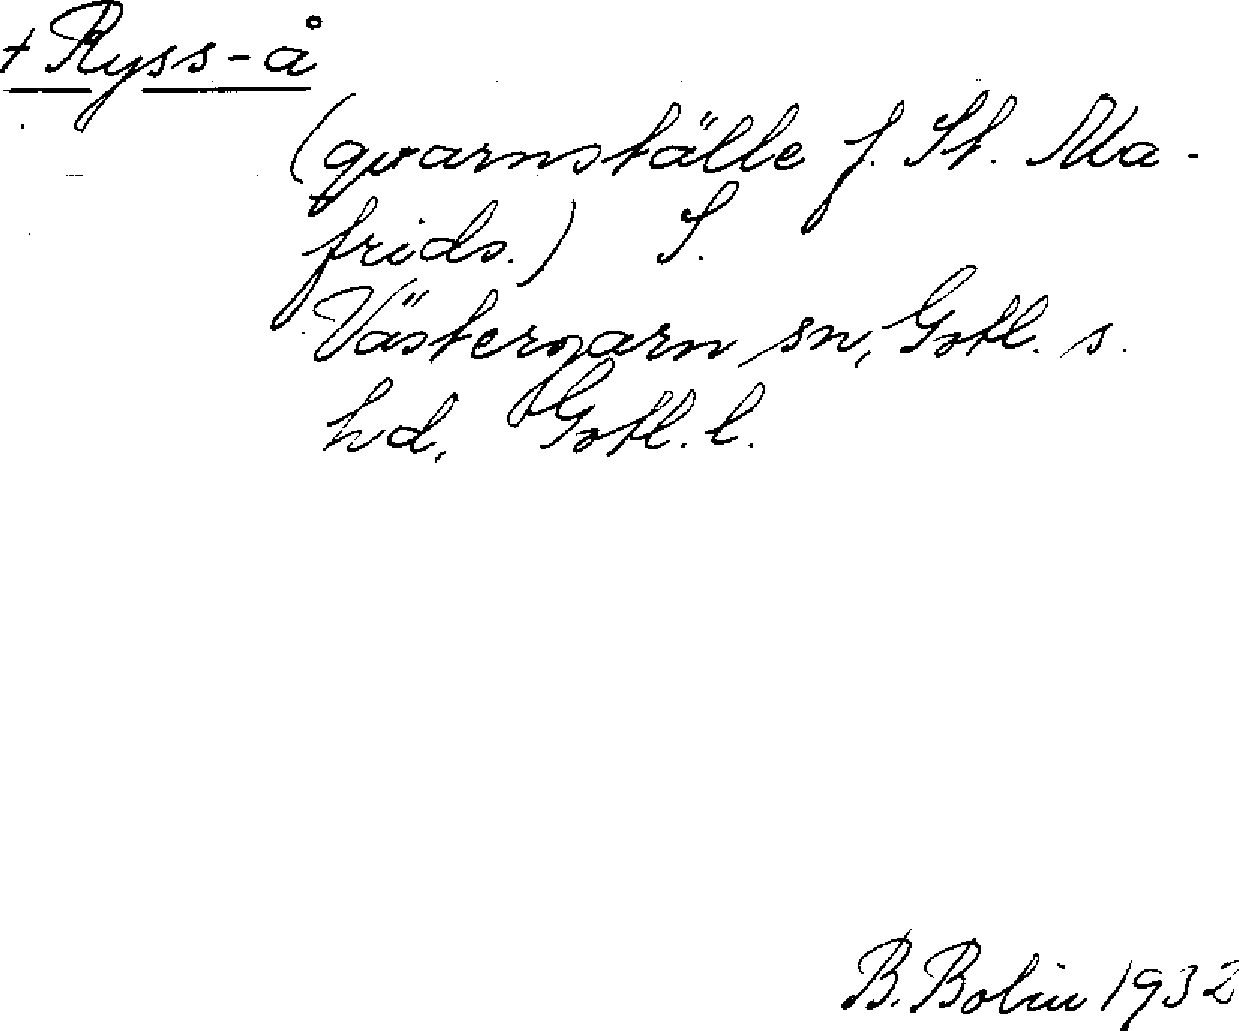 + Ryss-å
(qvarnställe f. St. Ma-
frids.) S.
Västergarn sn, Gotl. s.
hd, Gotl. l.
B. Bolin 1932